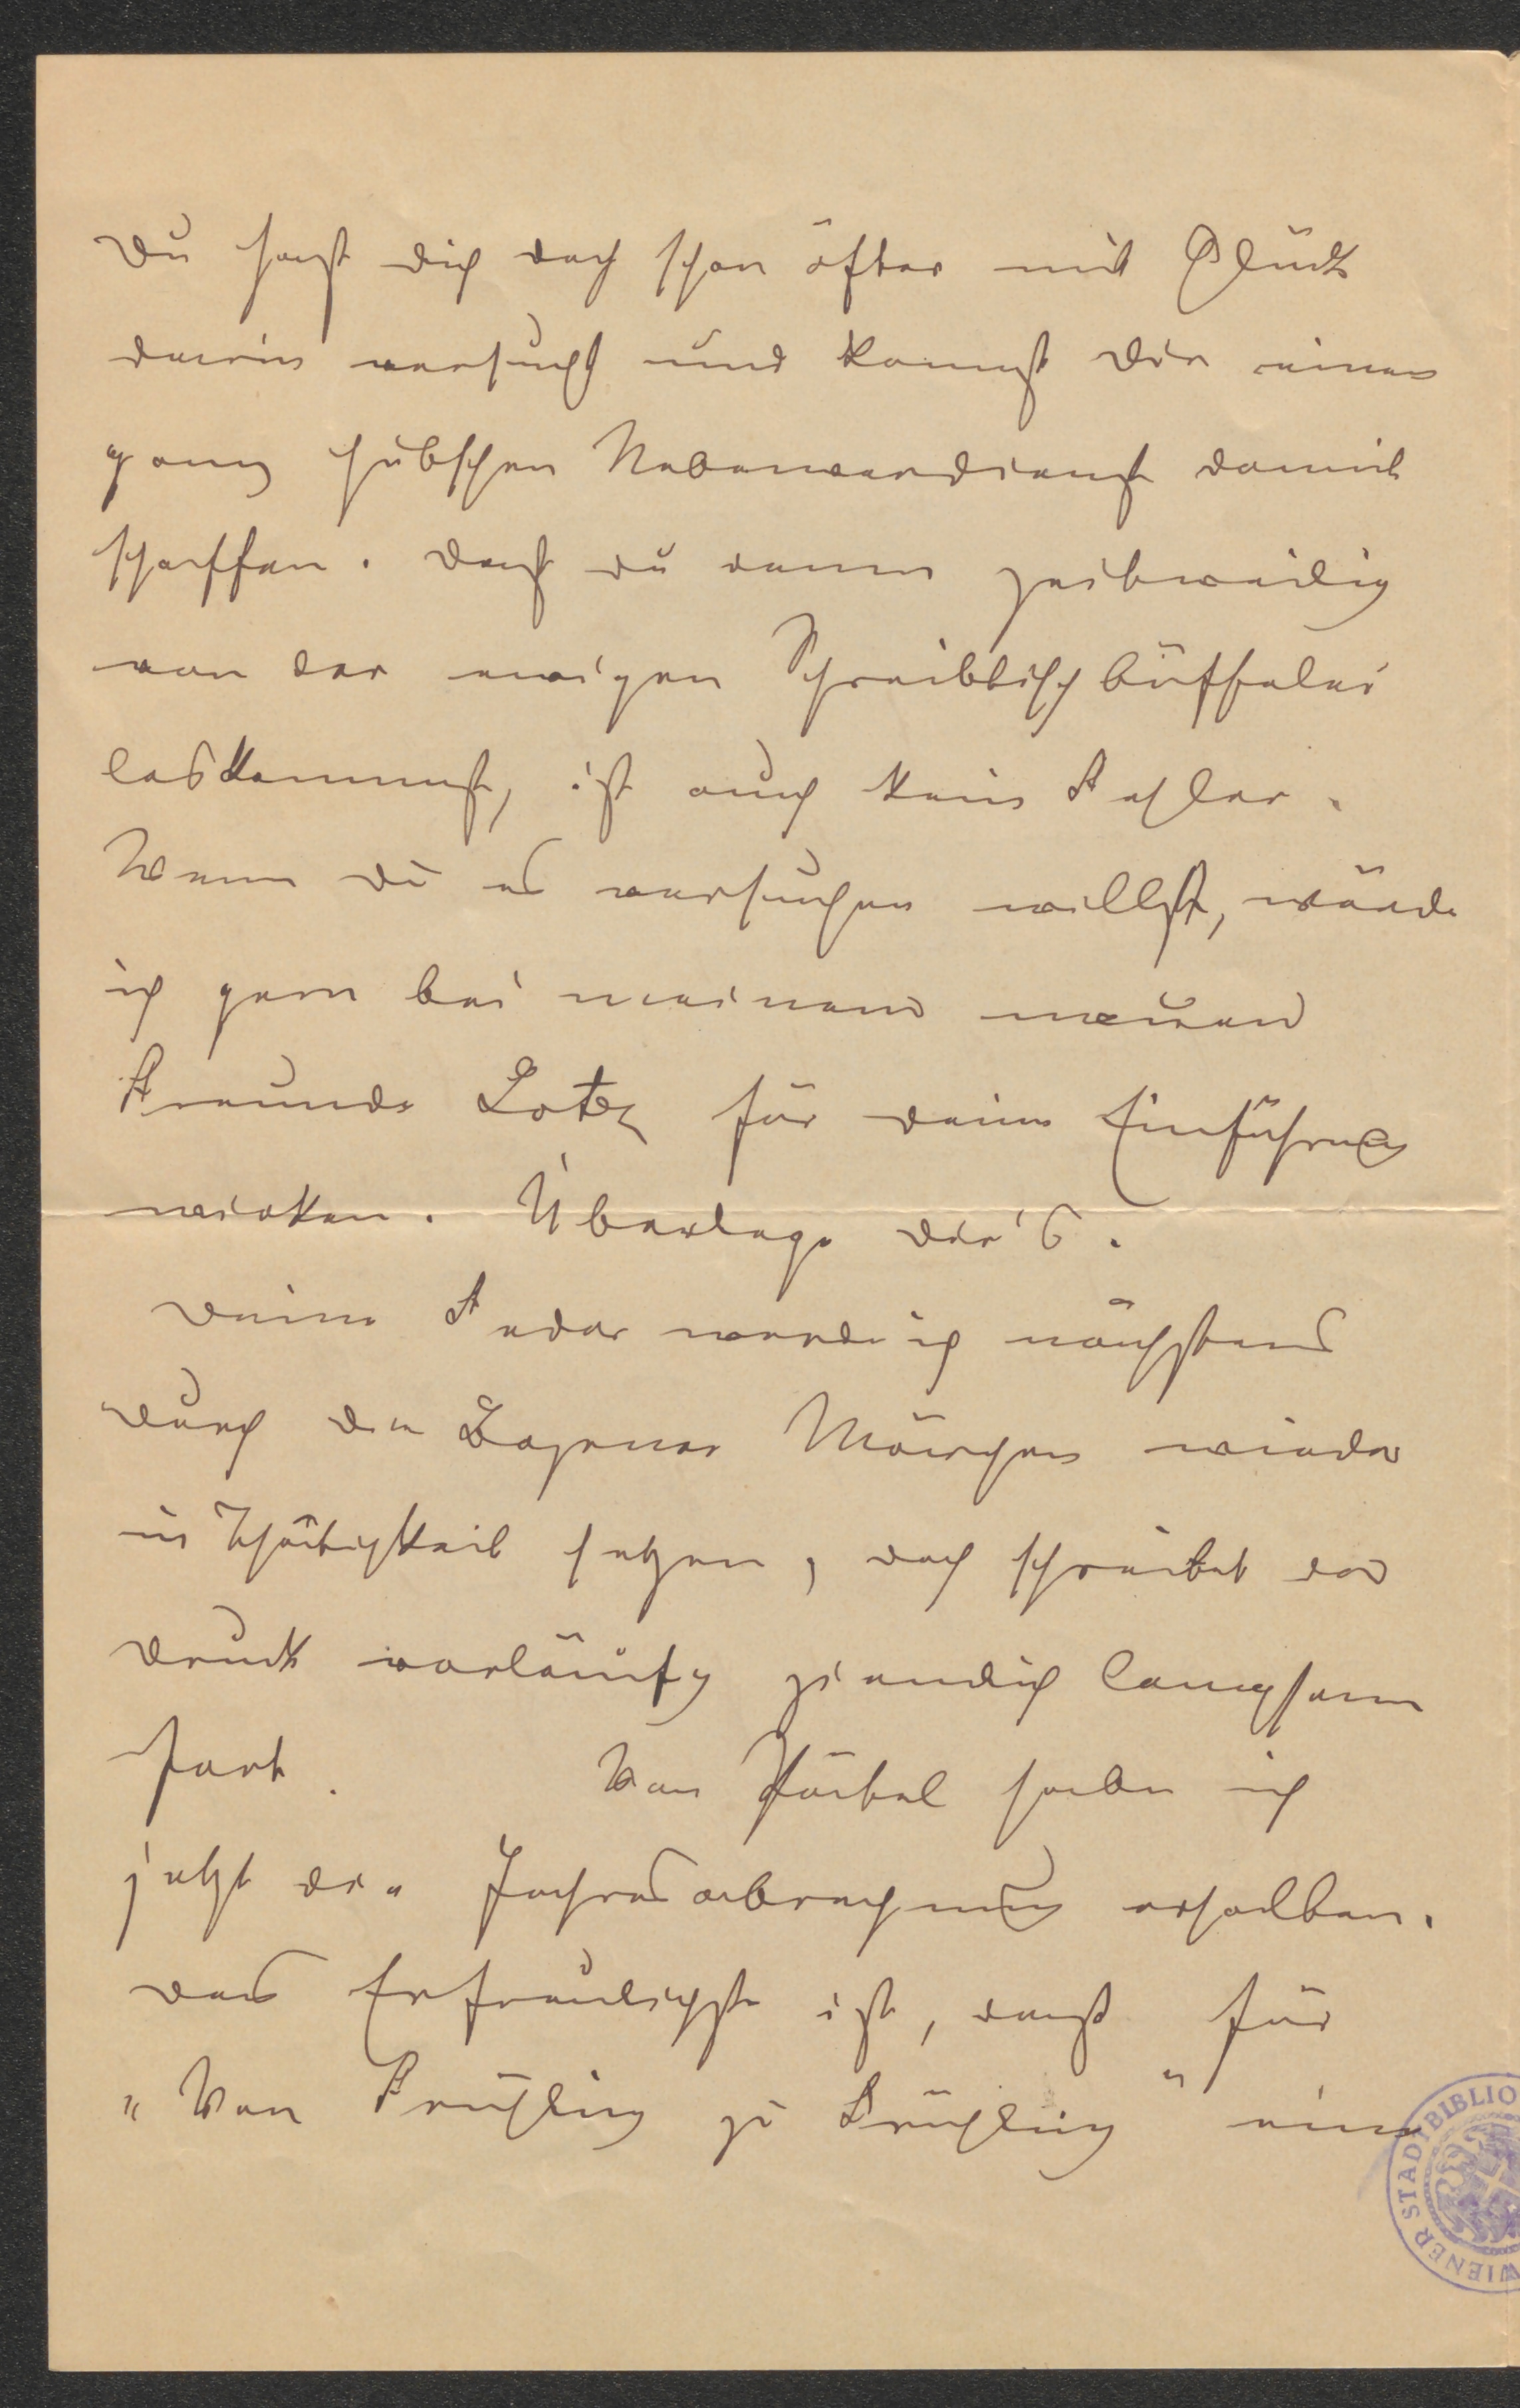 Du hast dich doch schon öfter mit Glück
darin versucht und kannst dir einen
ganz hübschen Nebenverdienst damit
schaffen. Daß du dann zeitweilig
von der ewigen Schreibtischbüffelei
loskommst, ist auch kein Fehler.
Wenn du es versuchen willst, würde
ich gern bei meinem neuen
Freunde Lotz für deine Einführung
wirken. Überlege dir's.
Deine Feder werde ich nächstens
durch den Bozener Märchen wieder
in Thätigkeit setzen, doch schreitet der
Druck vorläufig ziemlich langsam
fort. Von Pätel habe ich
jetzt die Jahresabrechnung erhalten.
Das Erfreulichste ist, daß für
"Von Frühling zu Frühling" eine
WIENER STADTBIBLIO